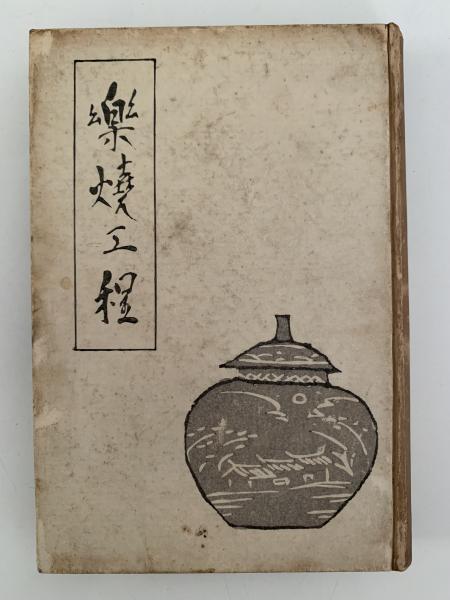 樂燒工程